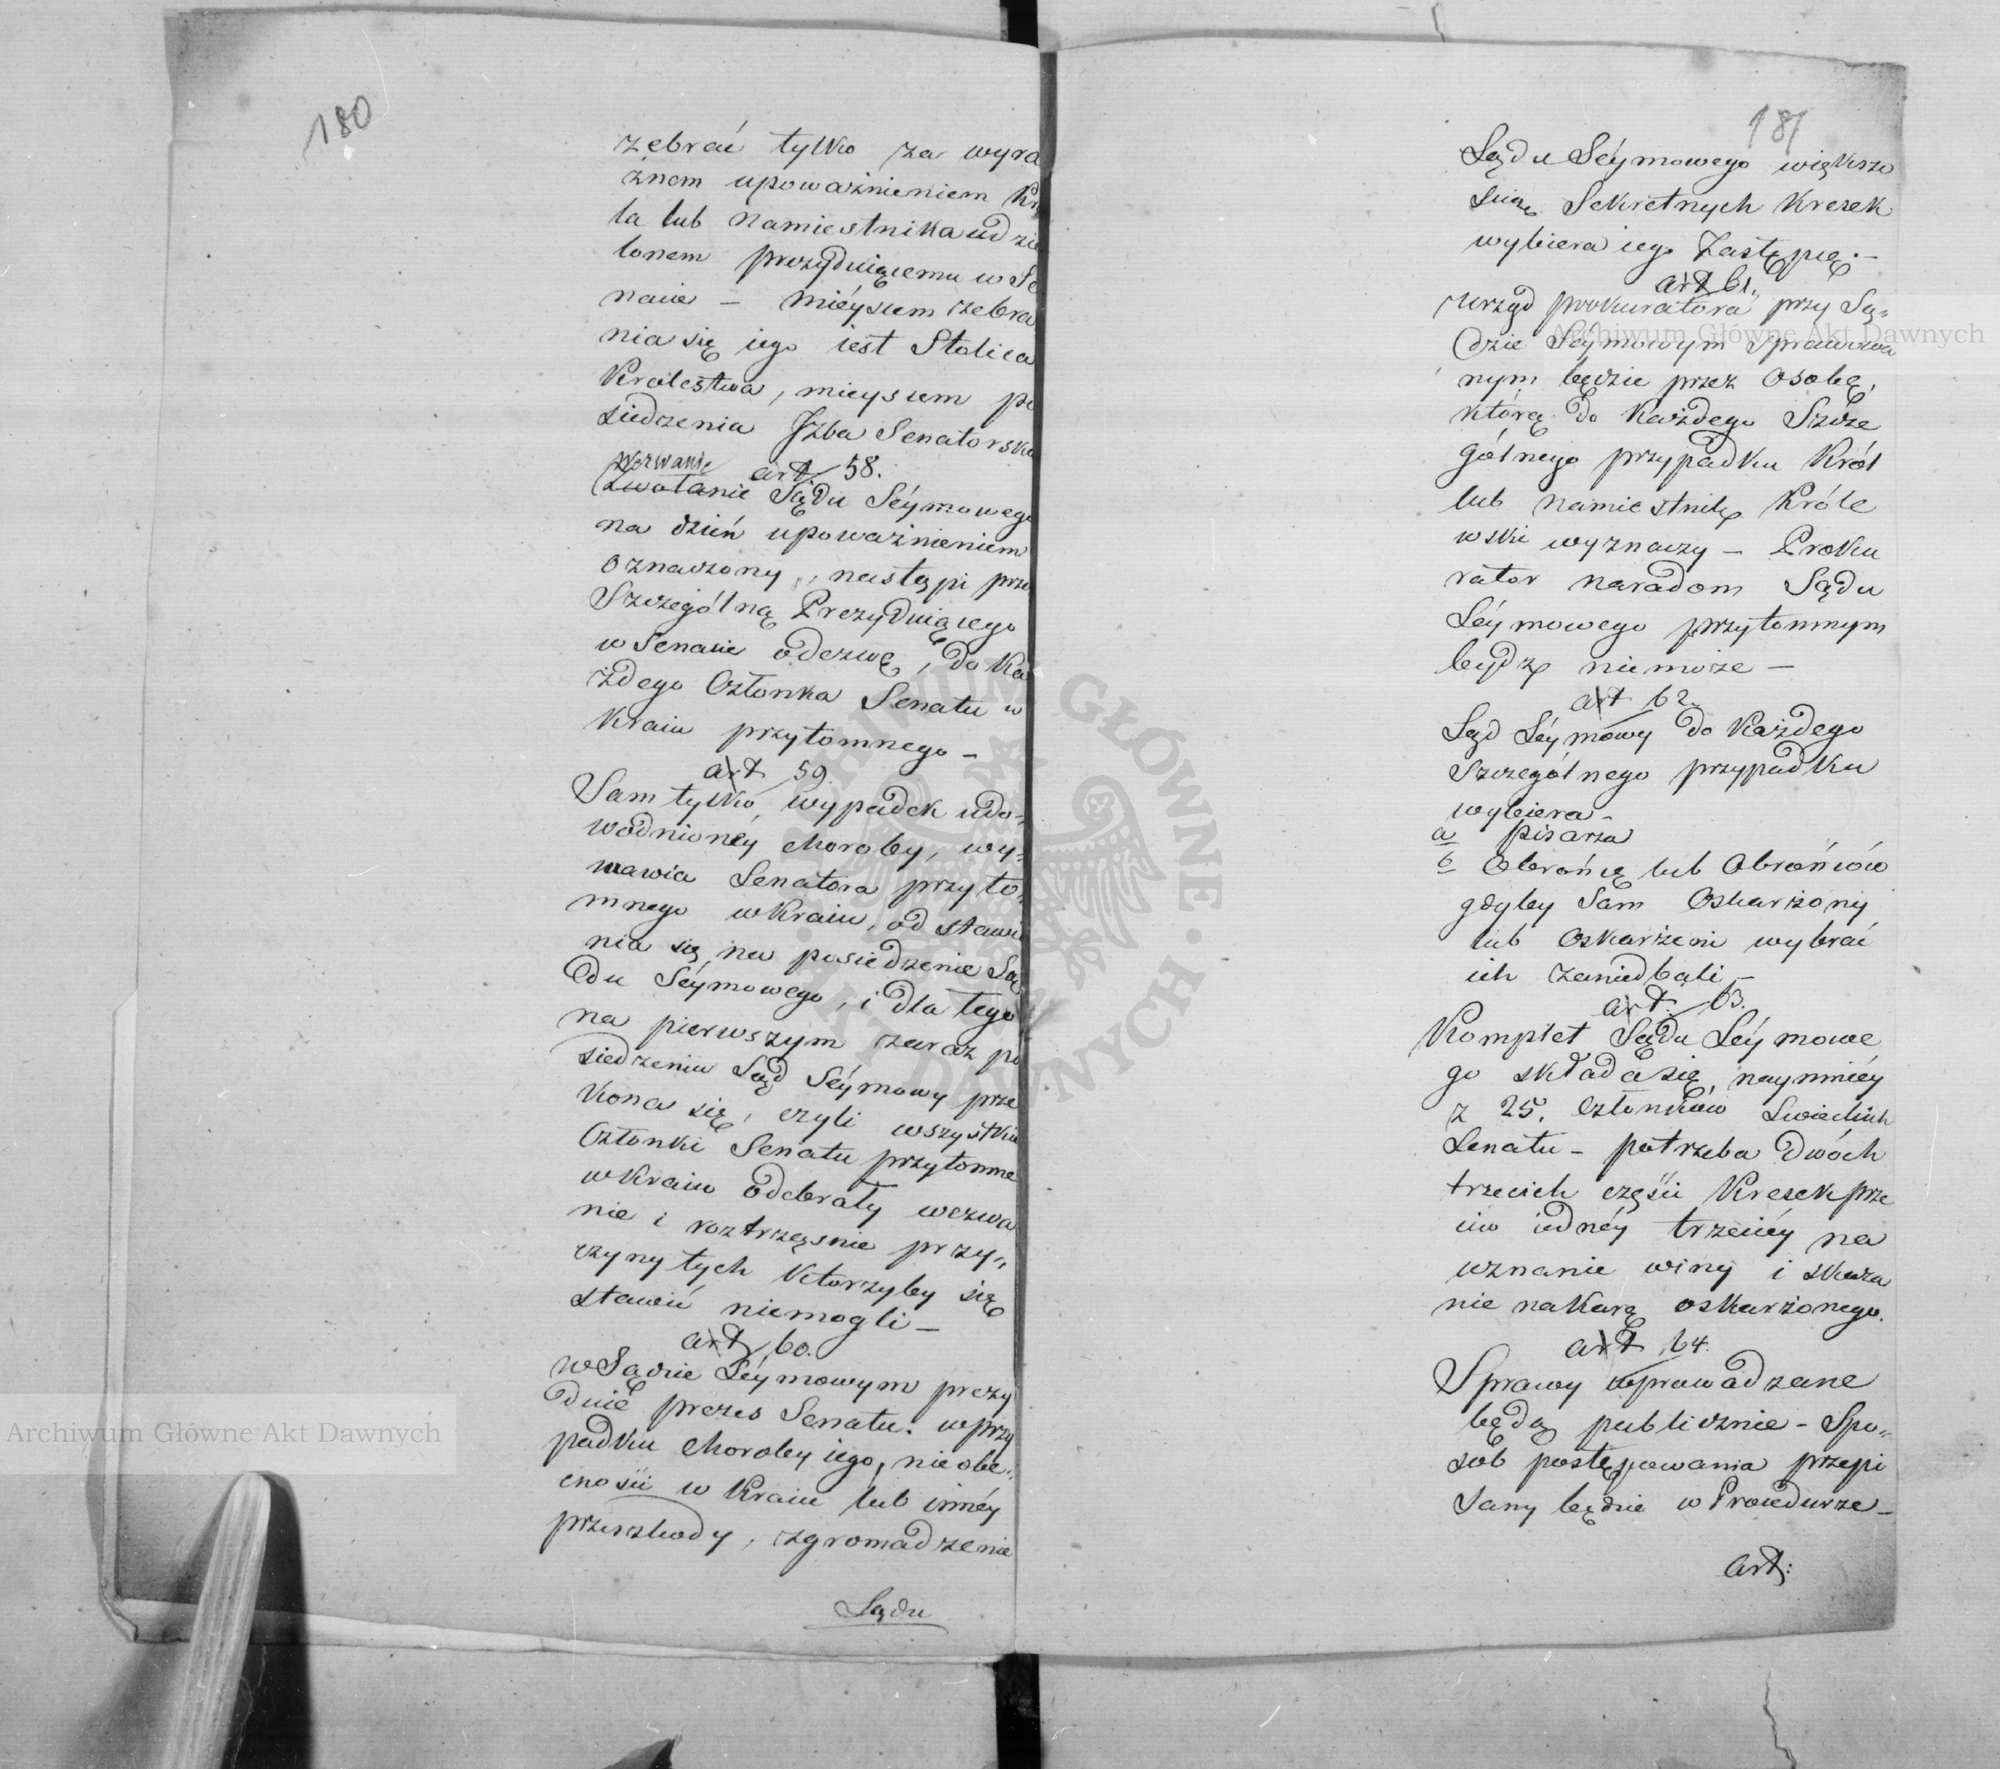 180
zebrać tylko za wyra
źnem upoważnieniem Kró
la lub Namiestnika udzie
lonem prezyduiącemu w Se
nacie – mieyscem zebra
nia się iego iest Stolica
Krolestwa, mieyscem po
siedzenia Jzba Senatorska
wezwanie art 58.
Zwołanie Sądu Séymowego
na dzień upoważnieniem
oznaczony, nastąpi prze
Szczególną Prezyduiącego
w Senacie odezwę, do Ka
żdego Członka Senatu w
Kraiu przytomnego –
art 59.
Sam tylko wypadek udo„
wodnionéy choroby, wy„
mawia Senatora przyto„
mnego w Kraiu, od stawie
nia się na posiedzenie Są
du Séymowego, i dla tego
na pierwszym zaraz po
siedzeniu Sąd Séymowy prze
kona się, czyli wszystkie
Członki Senatu przytomne
w Kraiu odebrały wezwa
nie i roztrząsnie przy„
czyny tych Ktorzyby się
stawić niemogli –
art 60.
w Sądzie Séymowym prezy
duie prezes Senatu. w przy
padku choroby iego, nieobe„
cności w Kraiu lub innéy
przeszkody, zgromadzenie
Sądu
181
Sądu Séymowego większo
scią Sekretnych Kresek
wybiera iego Zastępcę. –
art 61.
Urząd prokuratora przy Są„
dzie Séymowym Sprawowa
nym będzie przez Osobę,
którą do Każdego Szcze
gólnego przypadku Król
lub namiestnik Króle
wski wyznaczy – Proku
rator naradom Sądu
Séymowego przytomnym
bydź niemoże –
art 62.
Sąd Séymowy do Każdego
Szczególnego przypadku
wybiera –
a pisarza
b Obrońcę lub Obrońców
gdyby Sam Oskarżony
lub Oskarżeni wybrać
ich zaniedbali –
art. 63.
Komplet Sądu Séymowe
go składa się, naymniéy
z 25. Członków Swieckich
Senatu – potrzeba dwóch
trzecich części Kresek prze
ciw iednéy trzeciéy na
uznanie winy i skaza
nie na Karę oskarżonego.
art 64.
Sprawy wprowadzane
będą publicznie – Spo„
sob postępowania przepi
sany będzie w Procedurze –
art:
Archiwum Główne Akt Dawnych
Archiwum Główne Akt Dawnych
ARCHIWUM GŁÓWNE AKT DAWNYCH